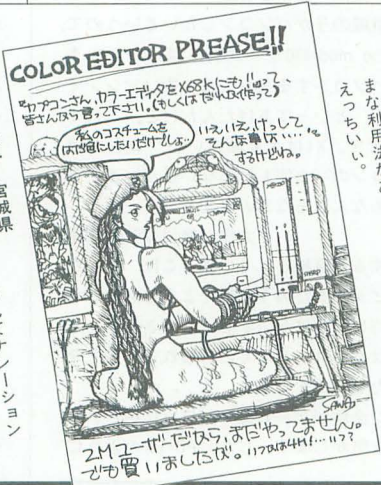 COLOR EDITOR PREASE!!
"カプコンさん、カラーエディタをX68Kにも!!"って
皆さんなら言って下さい。(もしくはだれか作って)
私のコスチュームを
はだ色にしたいだけでしょ…
いえいえ、けっして
そんな事は…。
するけどね。
SHARP
SAWAD
2Mユーザーだなら、まだやってません。
でも買いましたな。いつかは4M!…いつ?
まな利用法が
えっちいい。
宮城県
ネーション